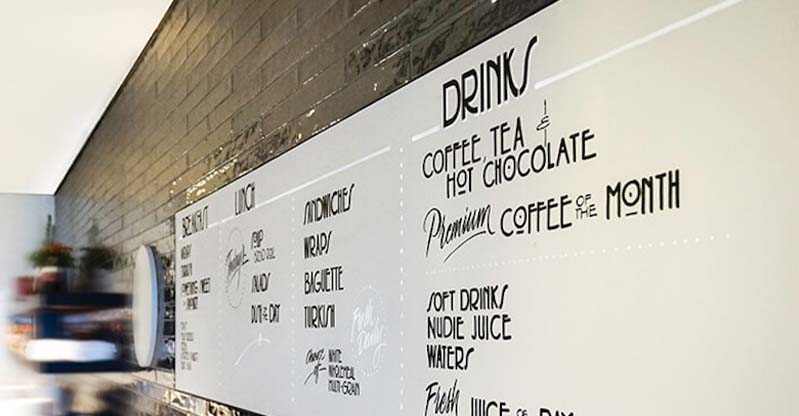 BREAKFAST
LUNCH
Today's
SOUP
SALADS
DISH OF THE DAY
SANDWICHES
WRAPS
BAGUETTE
TURKISH
Choice of
WHITE
WHOLEMEAL
MULTI-GRAIN
Fresh
Daily
DRINKS
COFFEE, TEA &
HOT CHOCOLATE
Premium COFFEE OF THE MONTH
SOFT DRINKS
NUDIE JUICE
WATERS
Fresh JUICE OF DAY